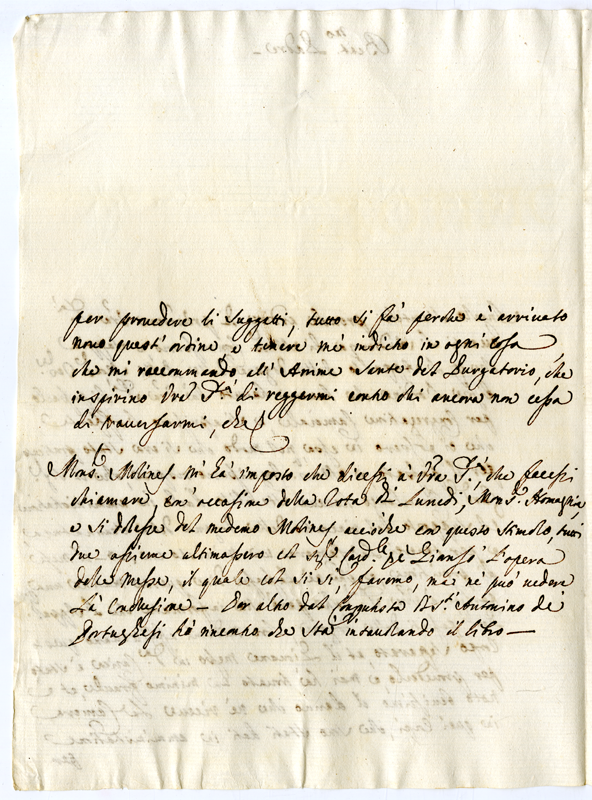 per provedere li suggetti, tutto si fà perche è arrivato
novo quest'ordine, e tenere mè indietro in ogni cosa
che mi raccommando all'Anime Sante del Purgatorio, che
inspirino Vrã di reggermi contro chi ancora non cessa
di traversarmi, che
Mons.r Molines mi hà imposto che dicessi à Vrã che facessi
chiamare, con occasione della Rota di Lunedì, Mons.r
e si dolesse del medemo Molines acciòche con questo stimolo, tutti
due assieme ultimassero col Sig.r Card.le de l'opera
delle Messe, il quale col si si faremo, mai ne può vedere
la conclusione — Per altro dal di S. Antonino de
Portughesi hò rinvenuto che stà intavolando il libro —